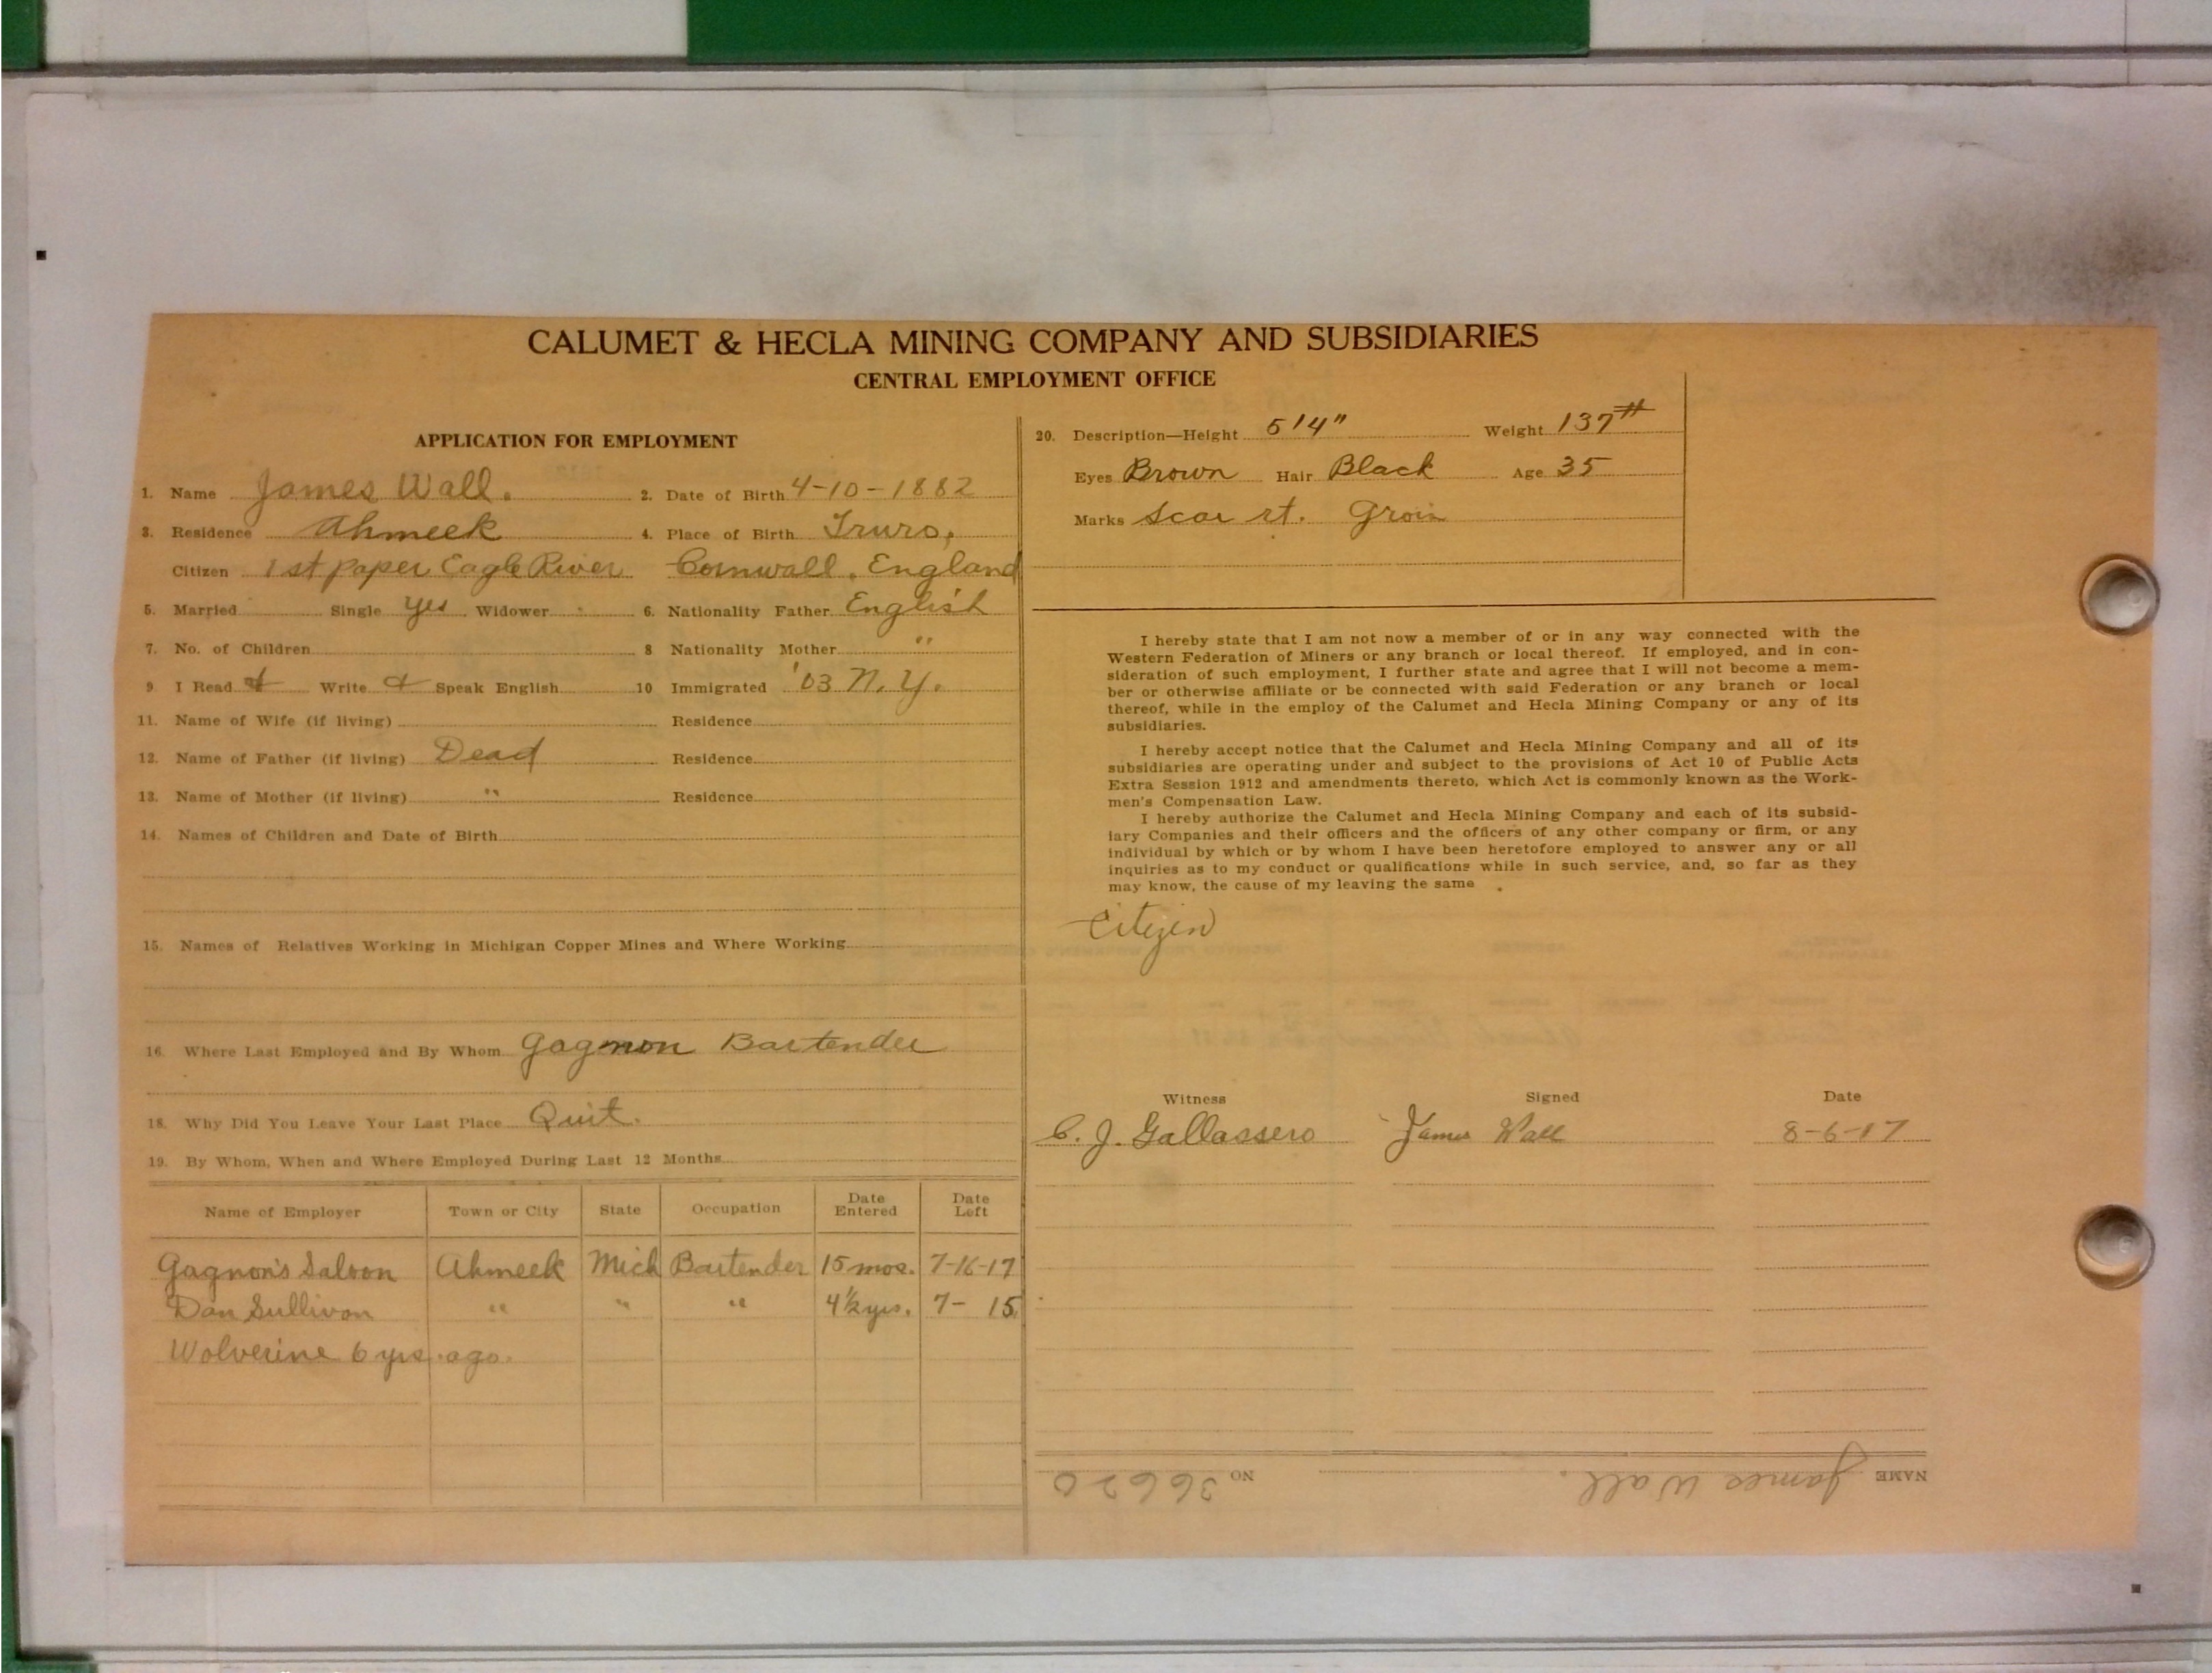 CALUMET & HECLA MINING COMPANY AND SUBSIDIARIES
CENTRAL EMPLOYMENT OFFICE
APPLICATION FOR EMPLOYMENT
1. Name James Wall. 2. Date of Birth 4-10-1882
3. Residence Ahmeek 4. Place of Birth Truro,
Citizen 1st paper Eagle River Cornwall, England
5. Married Single Yes Widower 6. Nationality Father English
7. No. of Children 8 Nationality Mother "
9 I Read & Write & Speak English 10 Immigrated '03 N.Y.
11. Name of Wife (if living) Residence
12. Name of Father (if living) Dead Residence
13. Name of Mother (if living) " Residence
14. Names of Children and Date of Birth
15. Names of Relatives Working in Michigan Copper Mines and Where Working
16. Where Last Employed and By Whom Gagnon Bartender
18. Why Did You Leave Your Last Place Quit.
19. By Whom, When and Where Employed During Last 12 Months
Name of Employer Town or City State Occupation Date Entered Date Left
Gagnon's Saloon Ahmeek Mich Bartender 15 mos. 7-16-17
Dan Sullivan " " " 4½ yrs. 7- 15
Wolverine 6 yrs. ago.
20. Description—Height 5'4" Weight 137#
Eyes Brown Hair Black Age 35
Marks Scar rt. Groin
I hereby state that I am not now a member of or in any way connected with the
Western Federation of Miners or any branch or local thereof. If employed, and in con-
sideration of such employment, I further state and agree that I will not become a mem-
ber or otherwise affiliate or be connected with said Federation or any branch or local
thereof, while in the employ of the Calumet and Hecla Mining Company or any of its
subsidiaries.
I hereby accept notice that the Calumet and Hecla Mining Company and all of its
subsidiaries are operating under and subject to the provisions of Act 10 of Public Acts
Extra Session 1912 and amendments thereto, which Act is commonly known as the Work-
men's Compensation Law.
I hereby authorize the Calumet and Hecla Mining Company and each of its subsid-
iary Companies and their officers and the officers of any other company or firm, or any
individual by which or by whom I have been heretofore employed to answer any or all
inquiries as to my conduct or qualifications while in such service, and, so far as they
may know, the cause of my leaving the same .
Citizen
Witness Signed Date
C. J. Gallassero James Wall 8-6-17
NAME James Wall. NO 36620